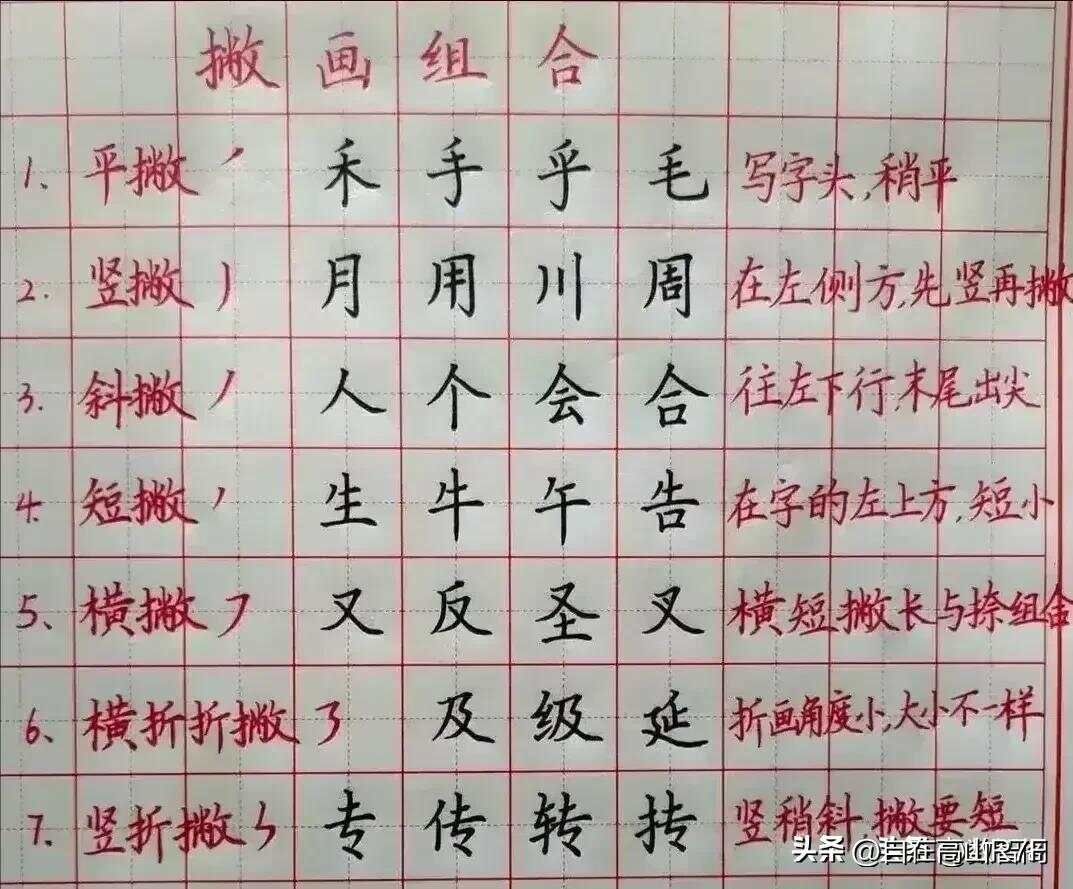 撇画组合
1、平撇 ㇒ 禾 手 乎 毛 写字头,稍平
2、竖撇 丿 月 用 川 周 在左侧方,先竖再撇
3、斜撇 丿 人 个 会 合 往左下行,末尾出尖
4、短撇 ㇒ 生 牛 午 告 在字的左上方,短小
5、横撇 ㇇ 又 反 圣 叉 横短撇长与捺组合
6、横折折撇 ㇋ 及 级 延 折画角度小,大小不一样
7、竖折撇 ㇉ 专 传 转 抟 竖稍斜,撇要短
头条